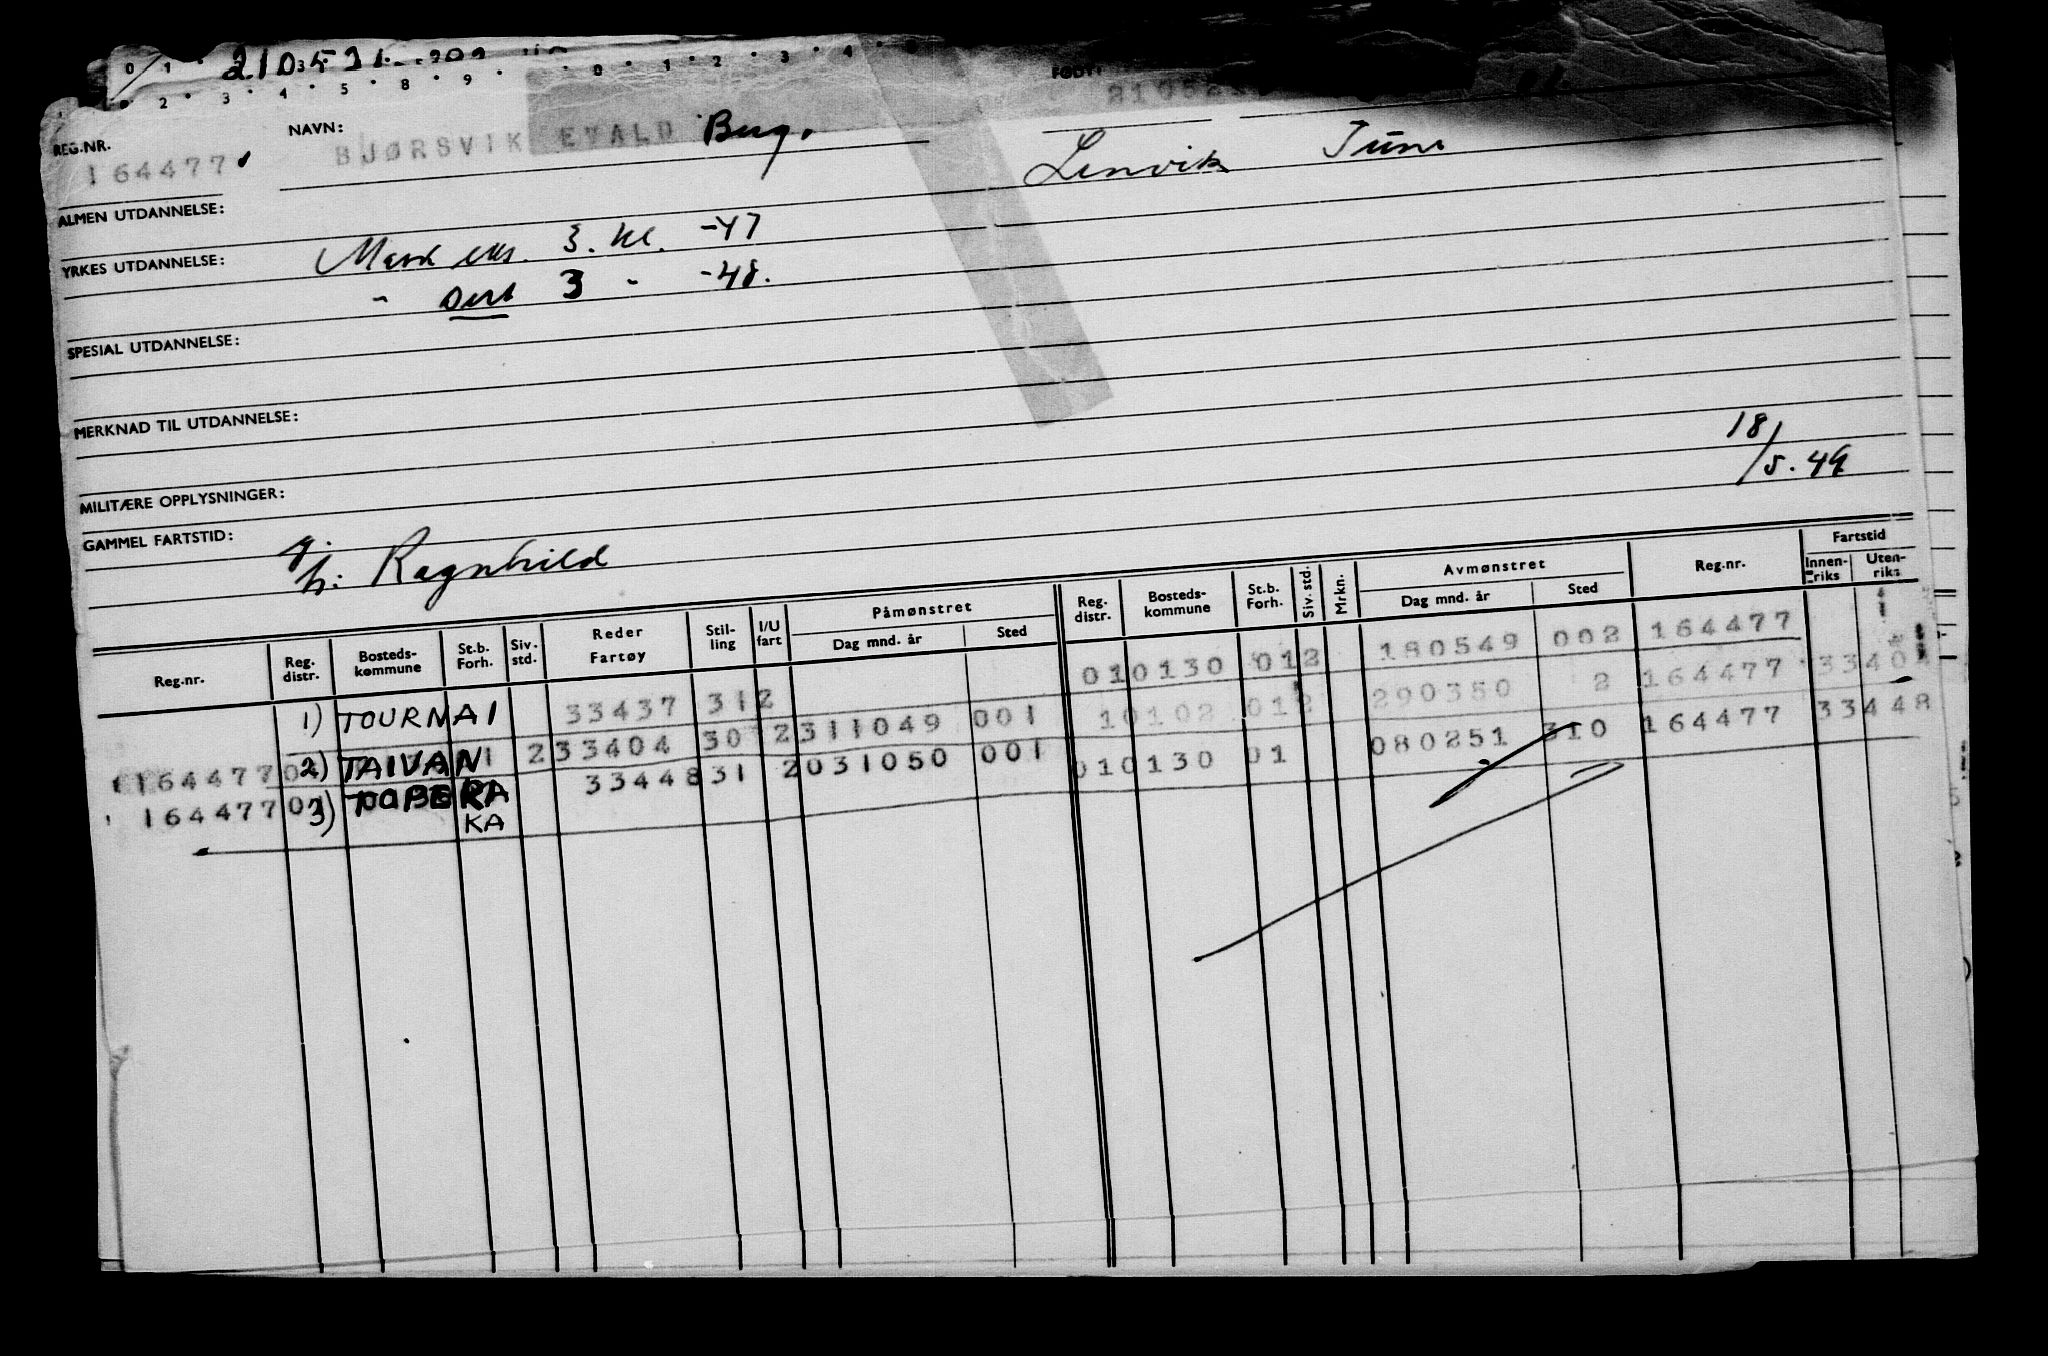 210531
0 1 3 4 5 8 9 0 1 2 3 4
REG.NR. NAVN: FØDT:
164477 BJØRSVIK EVALD Berg. 2105
Lenvik
ALMEN UTDANNELSE:
YRKES UTDANNELSE: Mask eks. 3. kl. -47
" 3 " -48.
SPESIAL UTDANNELSE:
MERKNAD TIL UTDANNELSE:
MILITÆRE OPPLYSNINGER:
18/5.49
GAMMEL FARTSTID: Ragnhild
Reg.nr. Reg. distr. Bosteds-kommune St.b. Forh. Siv. std. Reder Fartøy Stil-ling I/U fart Påmønstret Dag mnd. år Sted Reg. distr. Bosteds-kommune St.b. Forh. Siv. std. Mrkn. Avmønstret Dag mnd. år Sted Reg.nr. Fartstid Innen-riks Uten-riks
1) TOURNAI 33437 312 010130 012 180549 002 164477
164477 2) TAIVAN 2 33404 30 2 311049 001 10102 012 290350 2 164477 33404
164477 3) 33448 31 2 031050 001 010130 01 080251 310 164477 33448
KA